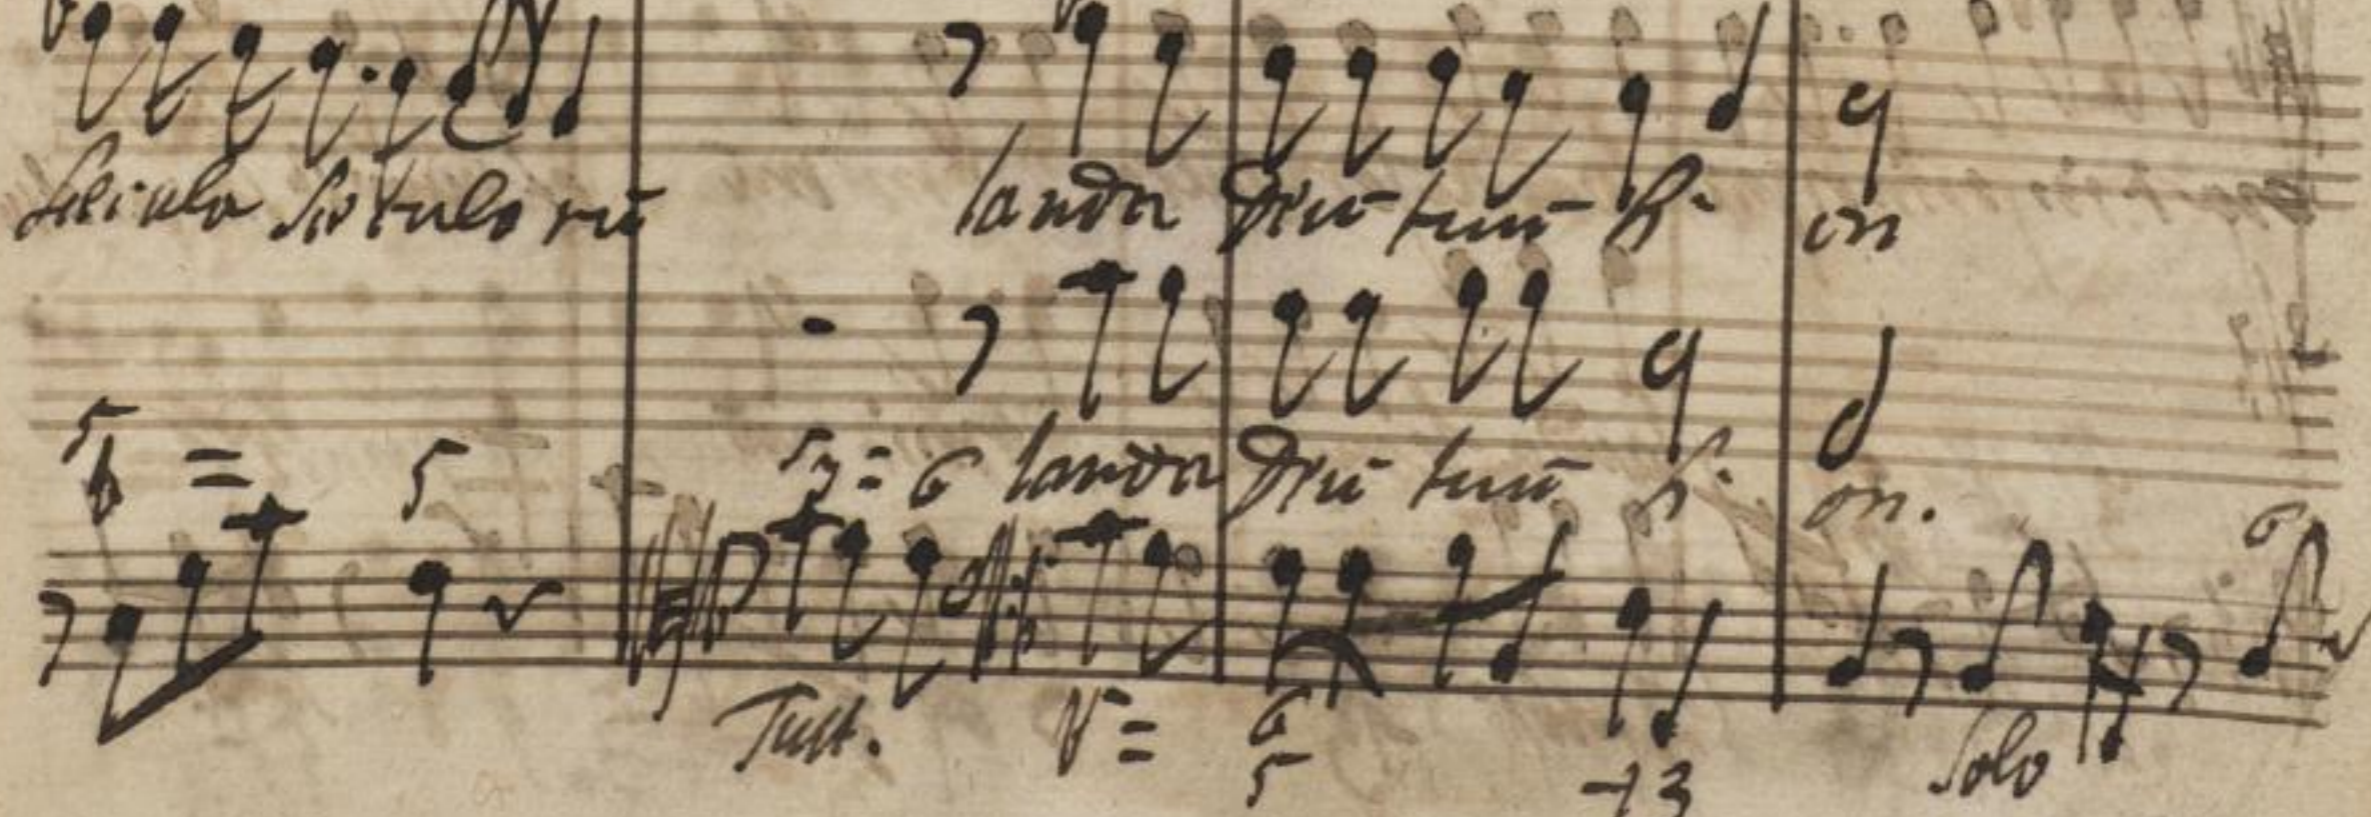 secula seculo rū lauda Deū tuū Si- on
lauda Deū tuū Si- on.
5 5 6 6
Tutt. Solo
6
5 43